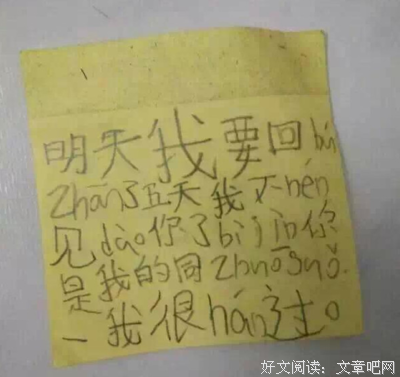 明天我要回bú
Zhàn了五天我不nén
见dào你了bìjìn你
是我的同Zhuōsuǒ.
一我很hán过。
好文阅读：文章吧网